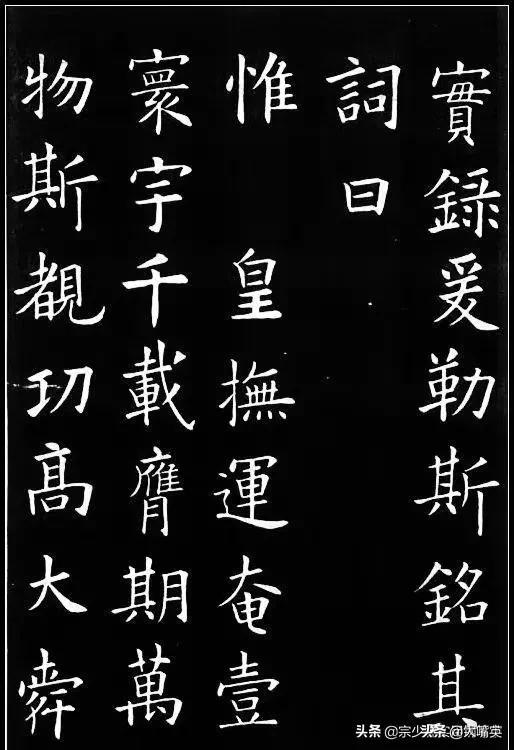 實録爰勒斯銘其
詞曰
惟 皇撫運奄壹
寰宇千載膺期萬
物斯覩功高大舜
头条 @宗少
头条 @大嘴英